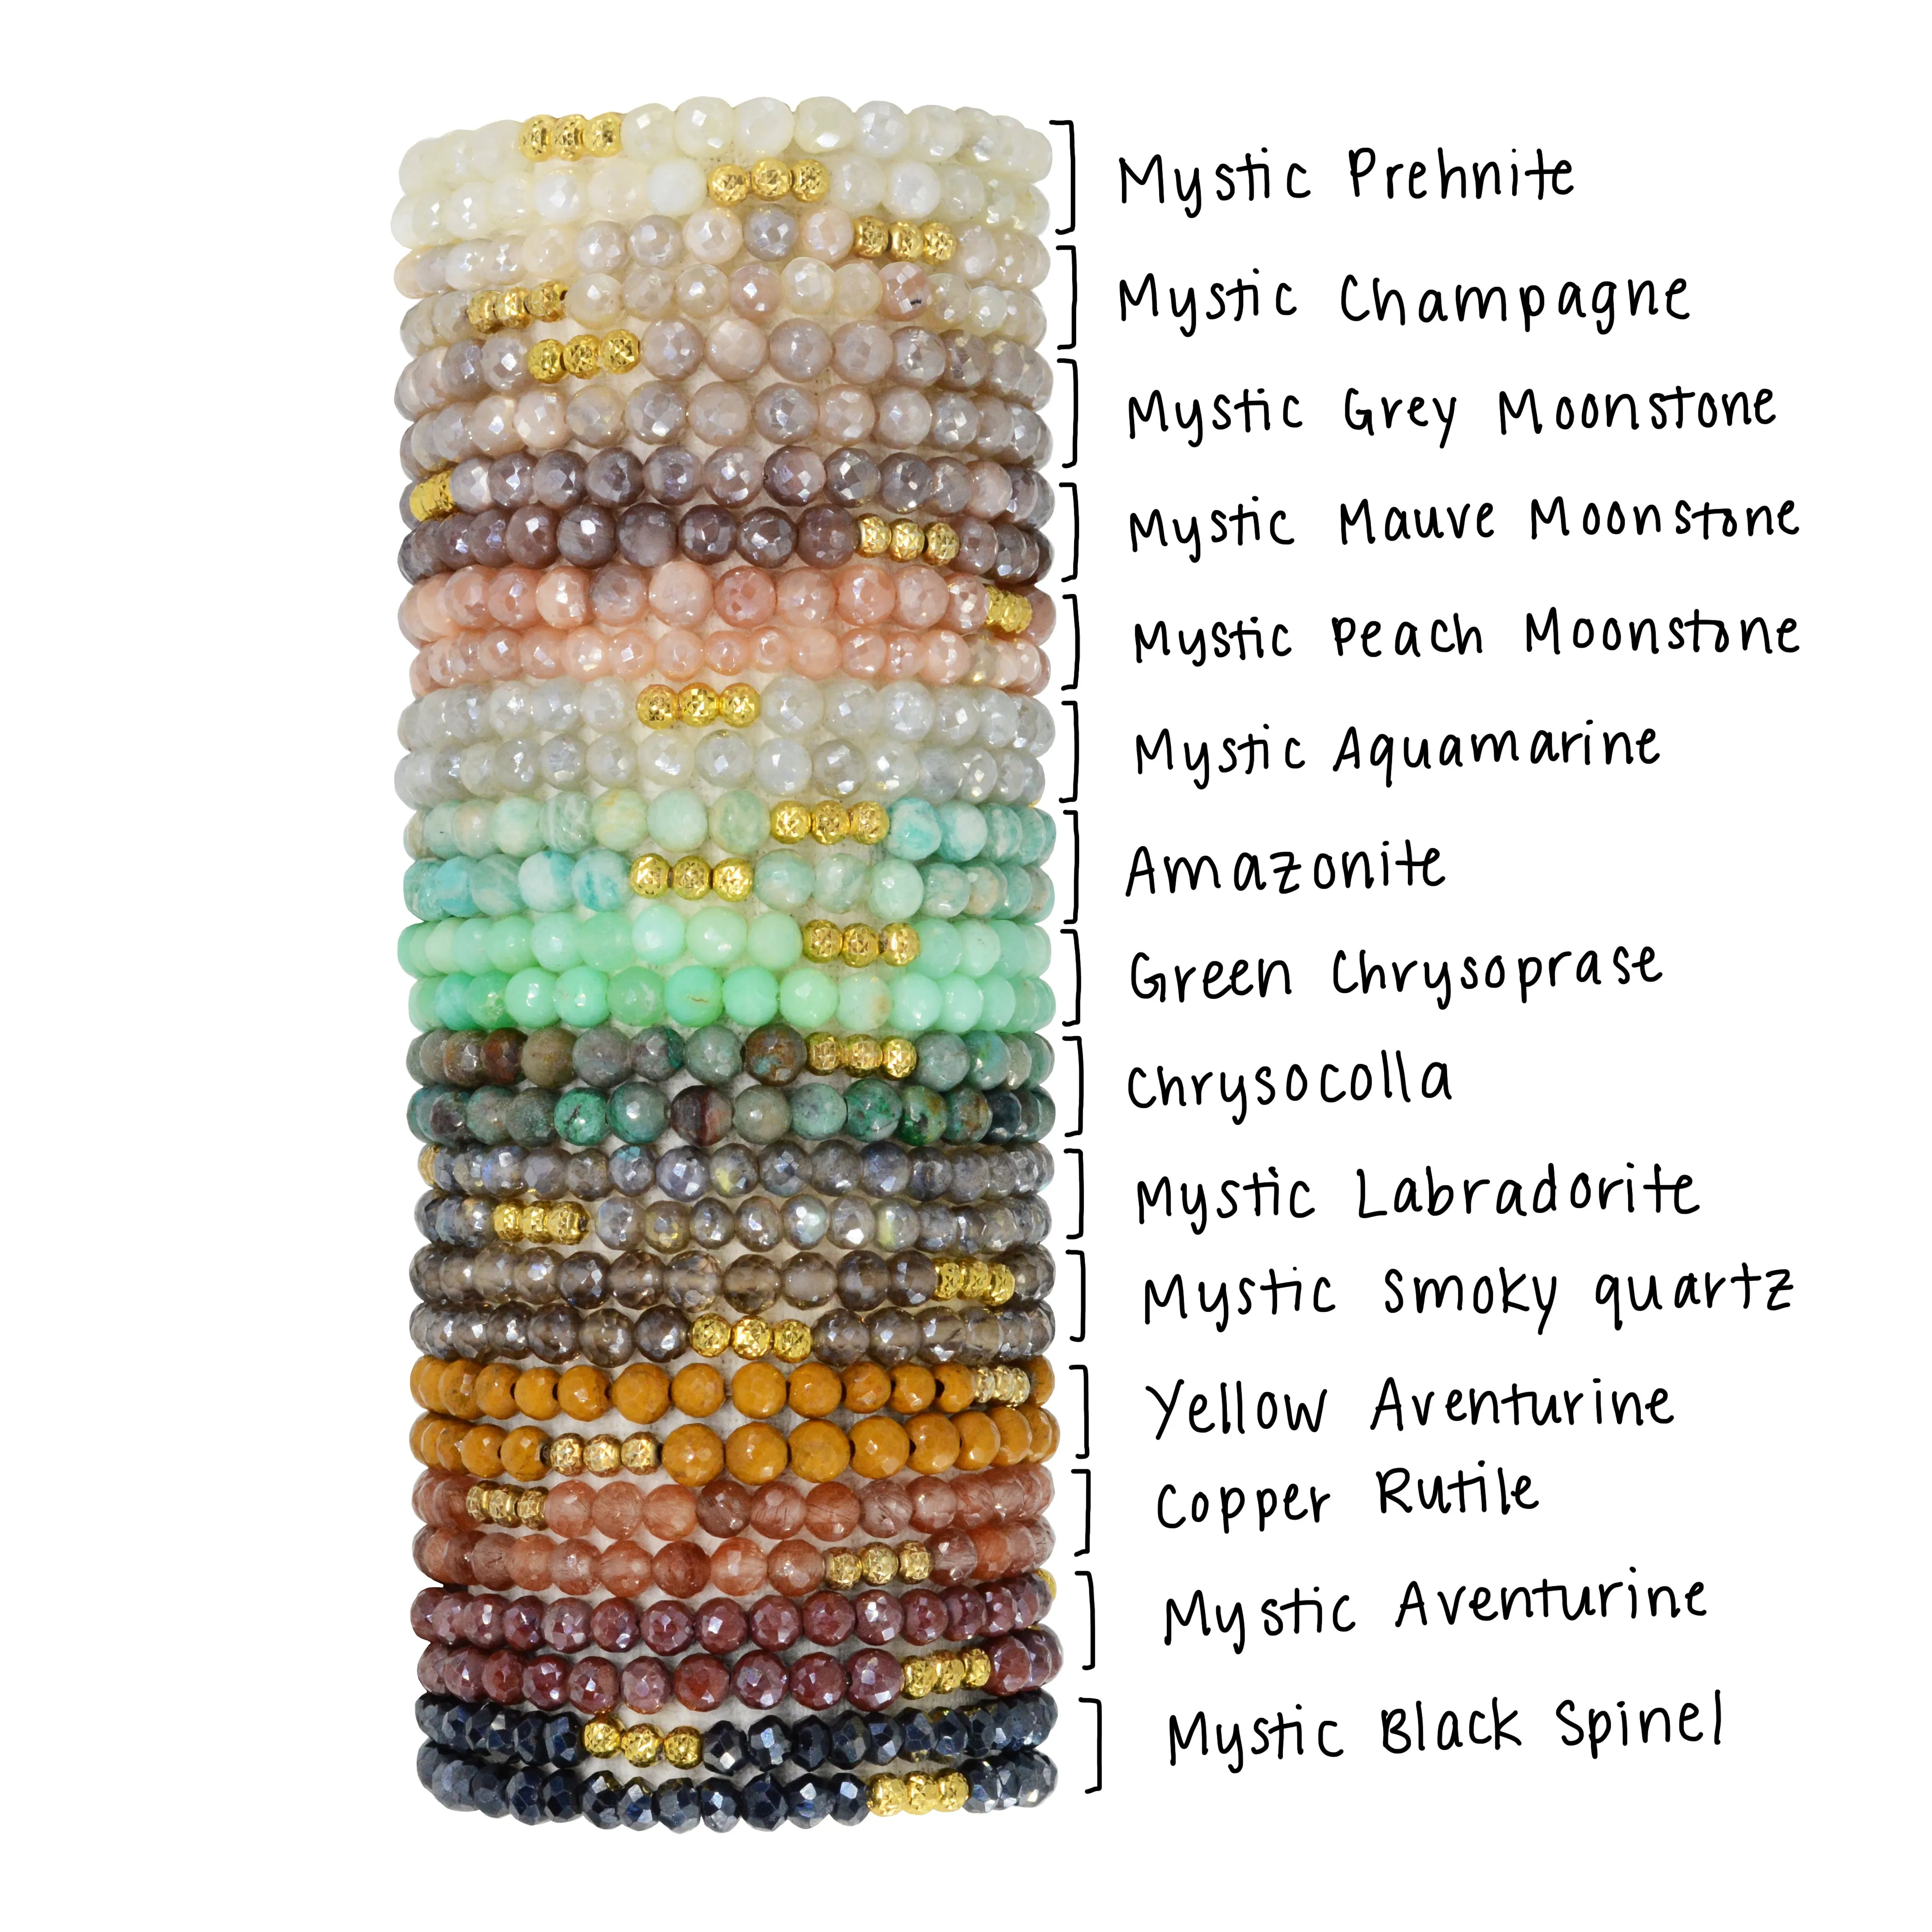 Mystic Prehnite
Mystic Champagne
Mystic Grey Moonstone
Mystic Mauve Moonstone
Mystic Peach Moonstone
Mystic Aquamarine
Amazonite
Green Chrysoprase
Chrysocolla
Mystic Labradorite
Mystic Smoky quartz
Yellow Aventurine
Copper Rutile
Mystic Aventurine
Mystic Black Spinel